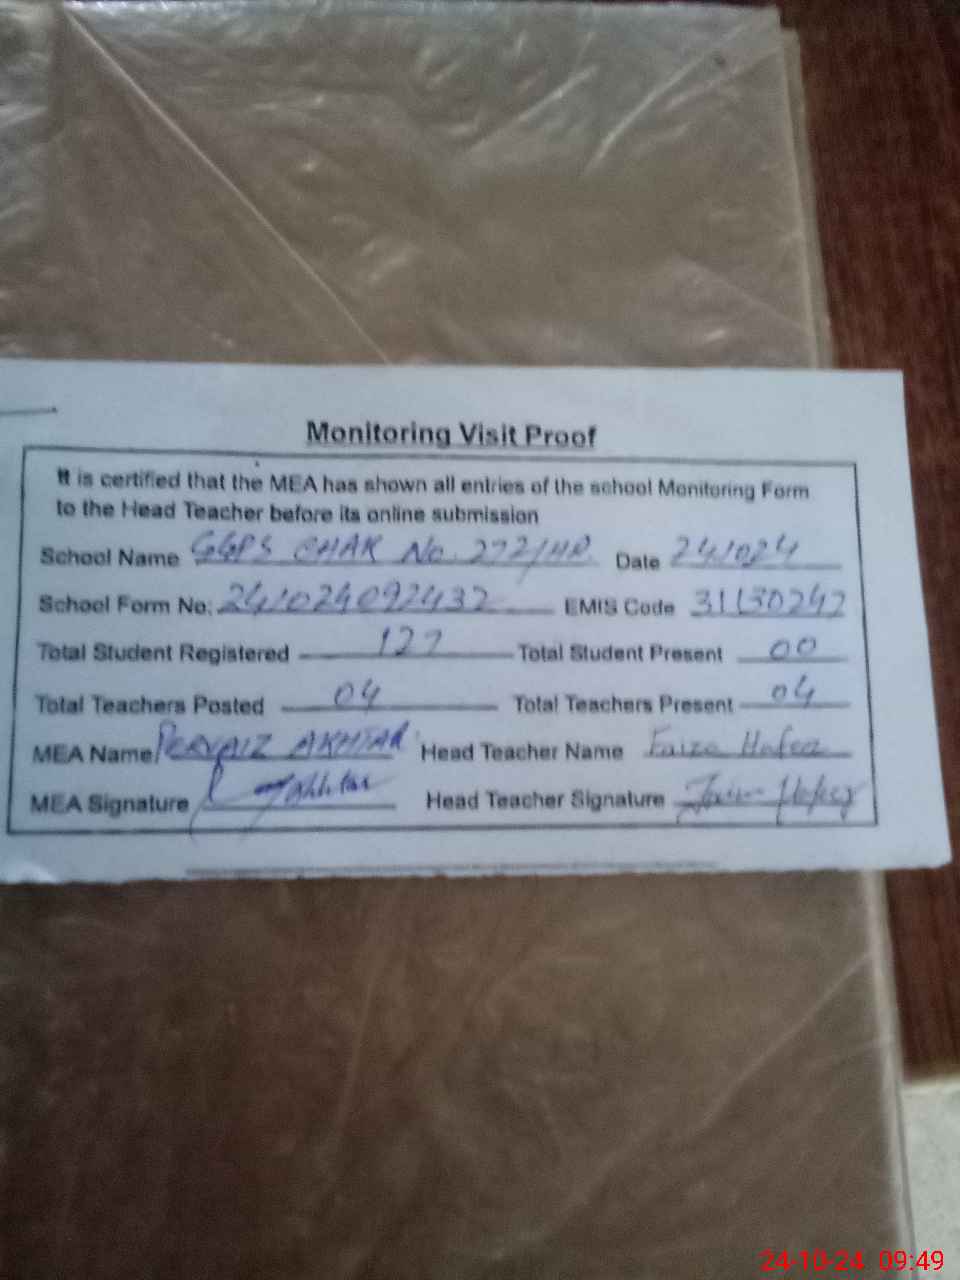 Monitoring Visit Proof
It is certified that the MEA has shown all entries of the school Monitoring Form
to the Head Teacher before its online submission
School Name GGPS CHAK No. 272/HR Date 241024
School Form No: 241024092432 EMIS Code 31130247
Total Student Registered 127 Total Student Present 00
Total Teachers Posted 04 Total Teachers Present 04
MEA Name PERVAIZ AKHTAR Head Teacher Name Faiza Hafeez
MEA Signature Akhtar Head Teacher Signature Faiza Hafeez
24-10-24 09:49